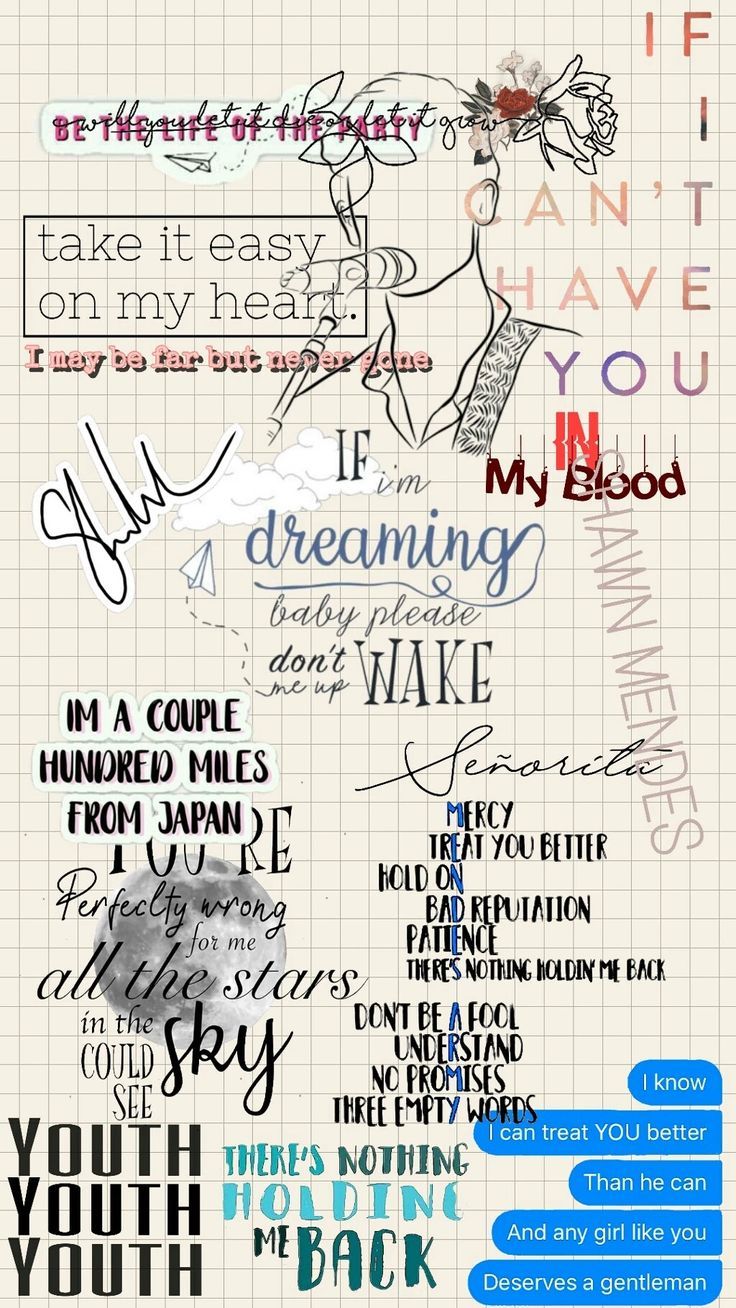 IF
I
CAN'T
HAVE
YOU
BE THE LIFE OF THE PARTY
will you let it die or let it grow
take it easy
on my heart.
I may be far but never gone
IN
My Blood
SHAWN MENDES
IF
i'm
dreaming
baby please
don't WAKE
me up
IM A COUPLE
HUNDRED MILES
FROM JAPAN
YOU'RE
Perfeclty wrong
for me
all the stars
in the sky
COULD
SEE
Señorita
MERCY
TREAT YOU BETTER
HOLD ON
BAD REPUTATION
PATIENCE
THERE'S NOTHING HOLDIN' ME BACK
DON'T BE A FOOL
UNDERSTAND
NO PROMISES
THREE EMPTY WORDS
I know
I can treat YOU better
Than he can
And any girl like you
Deserves a gentleman
YOUTH
YOUTH
YOUTH
THERE'S NOTHING
HOLDING
ME BACK